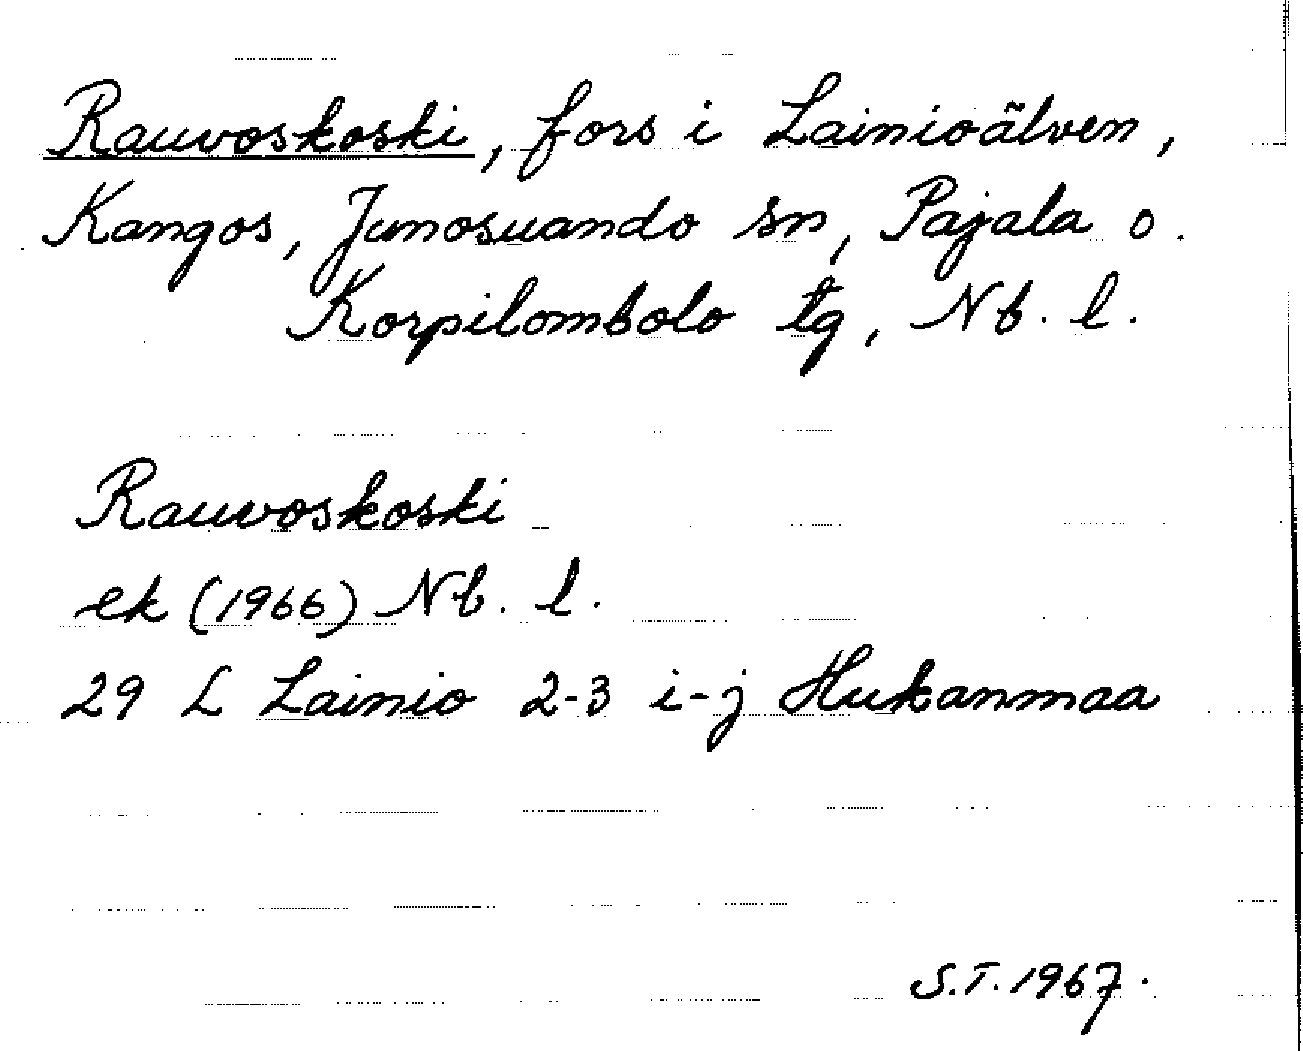 Rauvoskoski, fors i Lainioälven,
Kangos, Junosuando sn, Pajala o.
Korpilombolo tg, Nb. l.
Rauvoskoski
ek (1966) Nb. l.
29 L Lainio 2-3 i-j Hukanmaa
S.T. 1967.